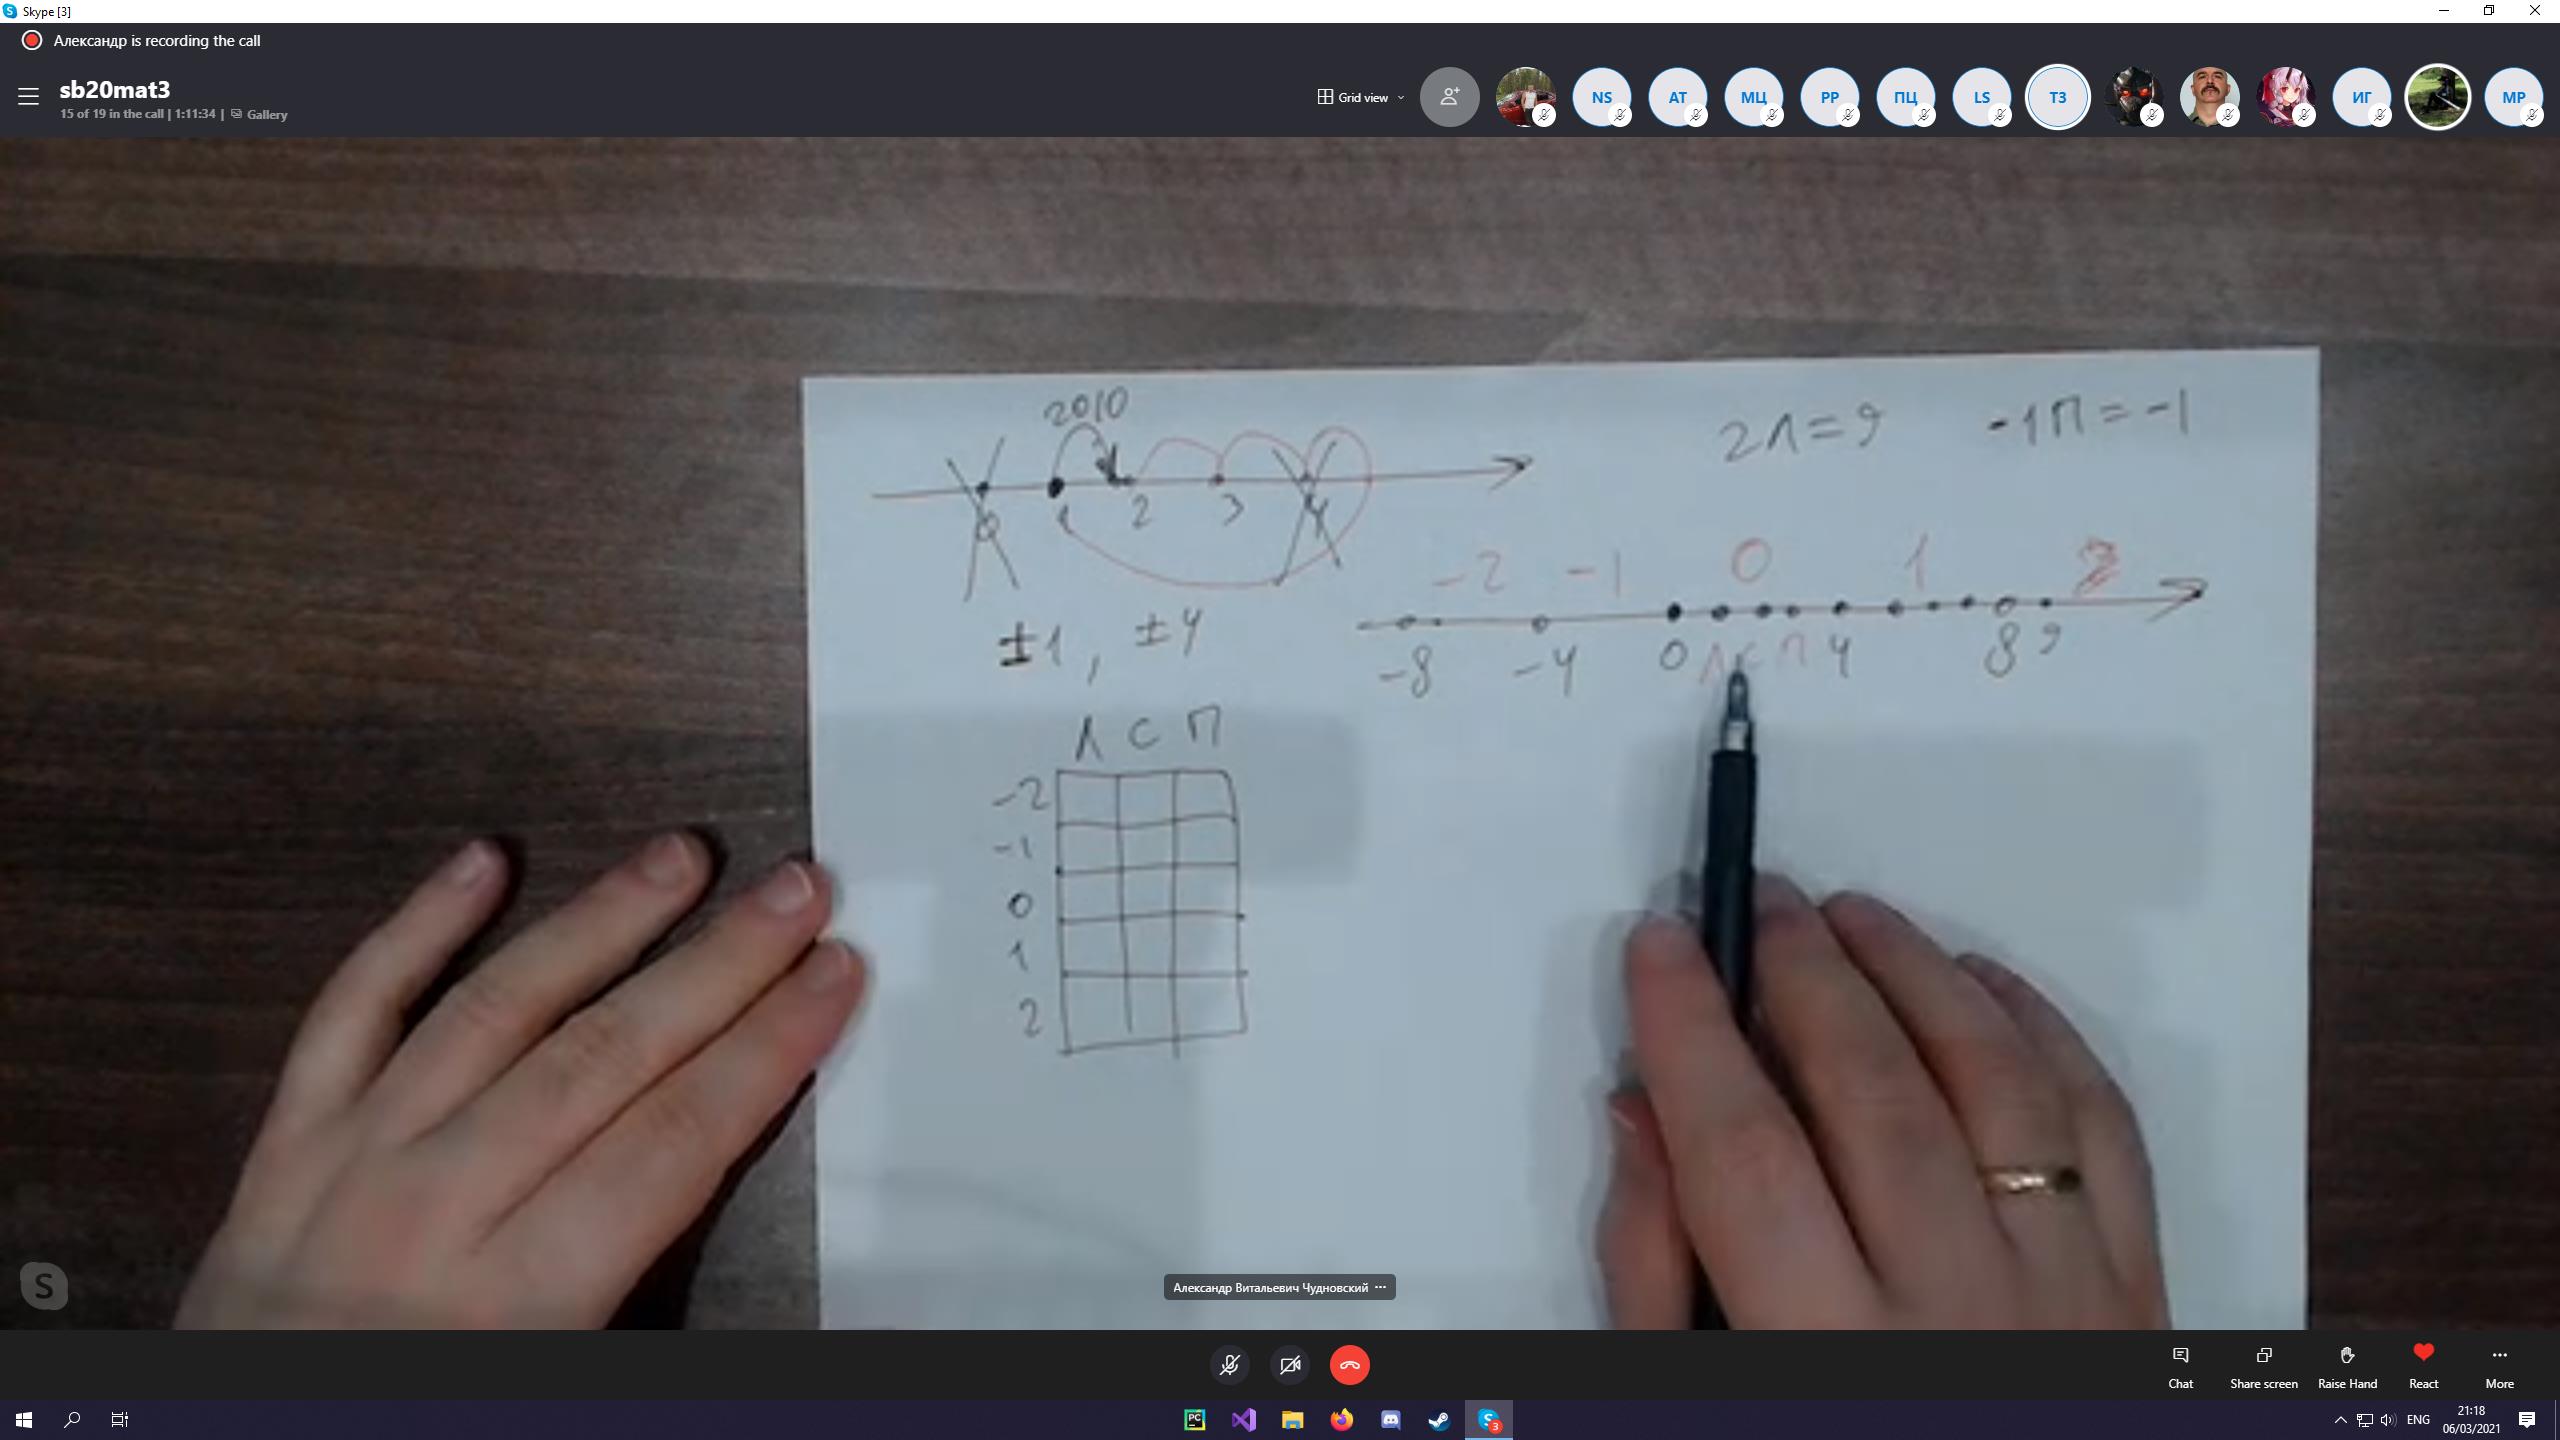 Skype [3]
Александр is recording the call
sb20mat3
15 of 19 in the call | 1:11:34 | Gallery
Grid view
NS
AT
МЦ
PP
ПЦ
LS
ТЗ
ИГ
MP
2010
2Л=9 -1П=-1
0 1 2 3 4
-2 -1 0 1 2
±1, ±4
-8 -4 0 Л С П 4 8 9
Л С П
-2
-1
0
1
2
Александр Витальевич Чудновский
Chat
Share screen
Raise Hand
React
More
21:18
ENG
06/03/2021